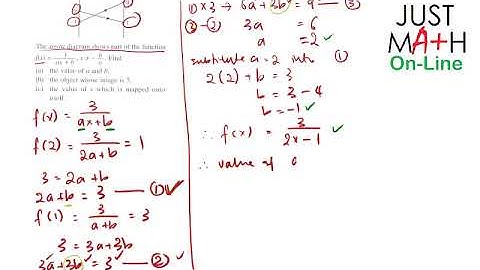 The arrow diagram shows part of the function
f(x) = 3/(ax + b), x ≠ -b/a. Find
(a) the value of a and b,
(b) the object whose image is 5,
(c) the value of x which is mapped onto
itself.
f(x) = 3/(ax+b)
f(2) = 3/(2a+b) = 1
3 = 2a+b
2a+b = 3 — ①
f(1) = 3/(a+b) = 3
3 = 3a+3b
3a+3b = 3 — ②
①×3 → 6a+3b = 9 — ③
③-② 3a = 6
a = 2
substitute a=2 into ①
2(2)+b = 3
b = 3-4
b = -1
∴ f(x) = 3/(2x-1)
∴ value of
JUST
MA+H
On-Line